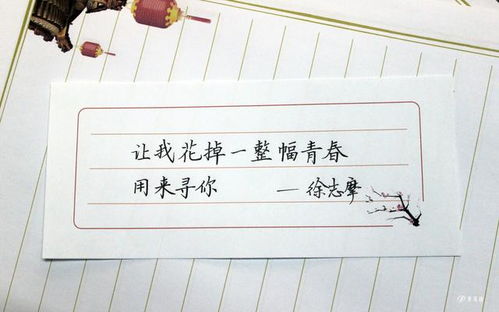 让我花掉一整幅青春
用来寻你 —徐志摩